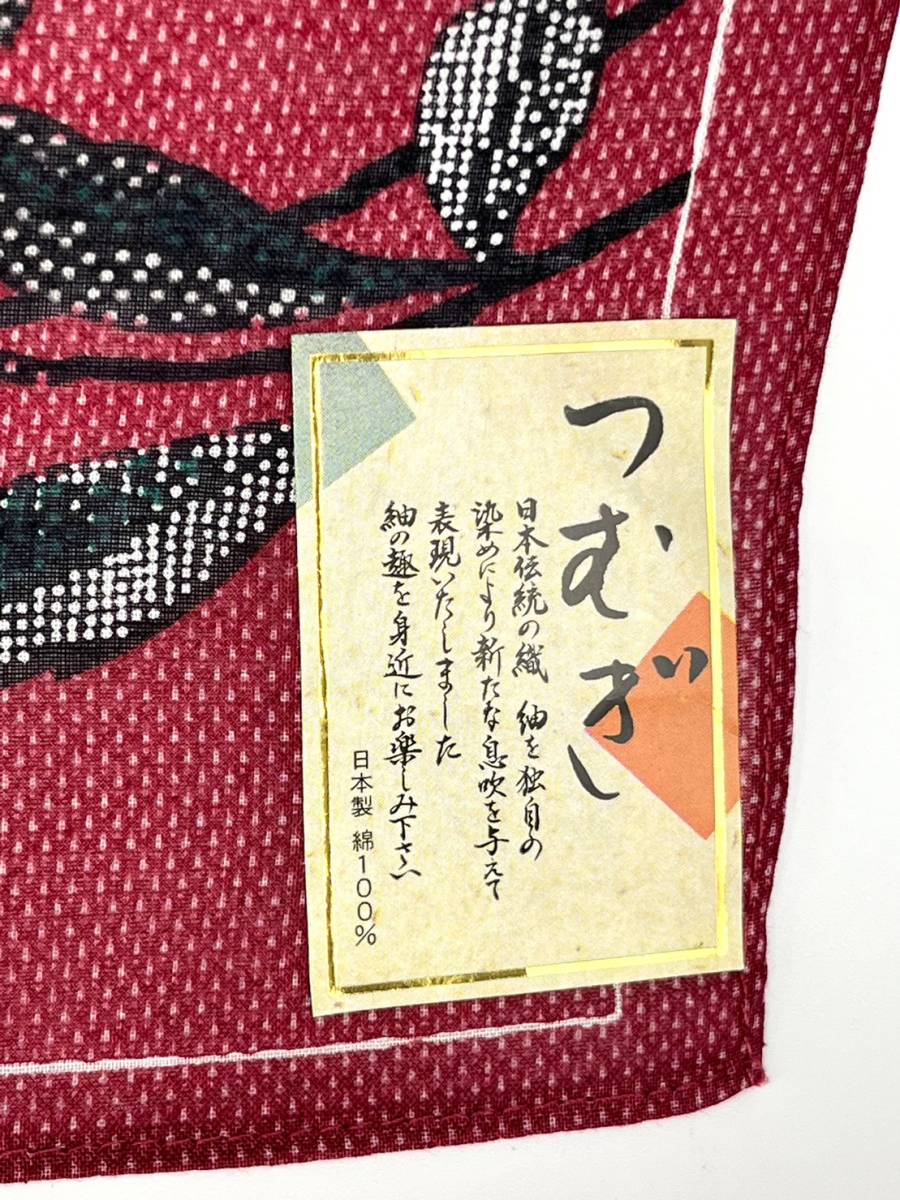 つむぎ
日本伝統の織　紬を独自の
染めにより新たな息吹を与えて
表現いたしました
紬の趣を身近にお楽しみ下さい
日本製 綿100%